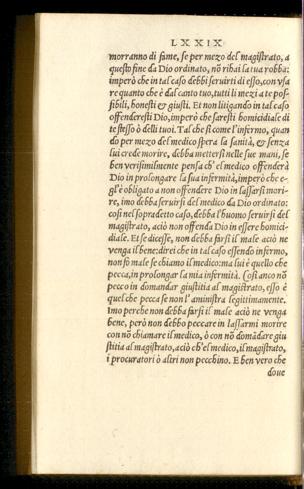 LXXIX
morranno di fame, se per mezo del magistrato, a
questo fine da Dio ordinato, nō rihai la tua robba:
imperò che in tal caso debbi seruirti di esso, con vsa
re quanto che è dal canto tuo, tutti li mezi a te pos-
sibili, honesti & giusti. Et non litigando in tal caso
offenderesti Dio, imperò che saresti homicidiale di
te stesso ò delli tuoi. Tal che sì come l'infermo, quan
do per mezo del medico spera la sanità, & senza
lui crede morire, debba mettersi nelle sue mani, se
ben verisimilmente pensa ch'el medico offenderà
Dio in prolongare la sua infermità, imperò che e-
gl'è obligato a non offendere Dio in lassarsi mori-
re, imo debba seruirsi del medico da Dio ordinato:
cosi nel sopradetto caso, debba l'huomo seruirsi del
magistrato, aciò non offenda Dio in essere homici-
diale. Et se dicesse, non debba farsi il male aciò ne
venga il bene: direi che in tal caso essendo infermo,
non fò male se chiamo il medico: ma lui è quello che
pecca, in prolongar la mia infermità. Cosi anco nō
pecco in domandar giustitia al magistrato, esso è
quel che pecca se non l'aministra legittimamente.
Imo perche non debba farsi il male aciò ne venga
bene, però non debbo peccare in lassarmi morire
con nō chiamare il medico, ò con nō domādare giu
stitia al magistrato, aciò ch'el medico, il magistrato,
i procuratori ò altri non pecchino. E ben vero che
doue